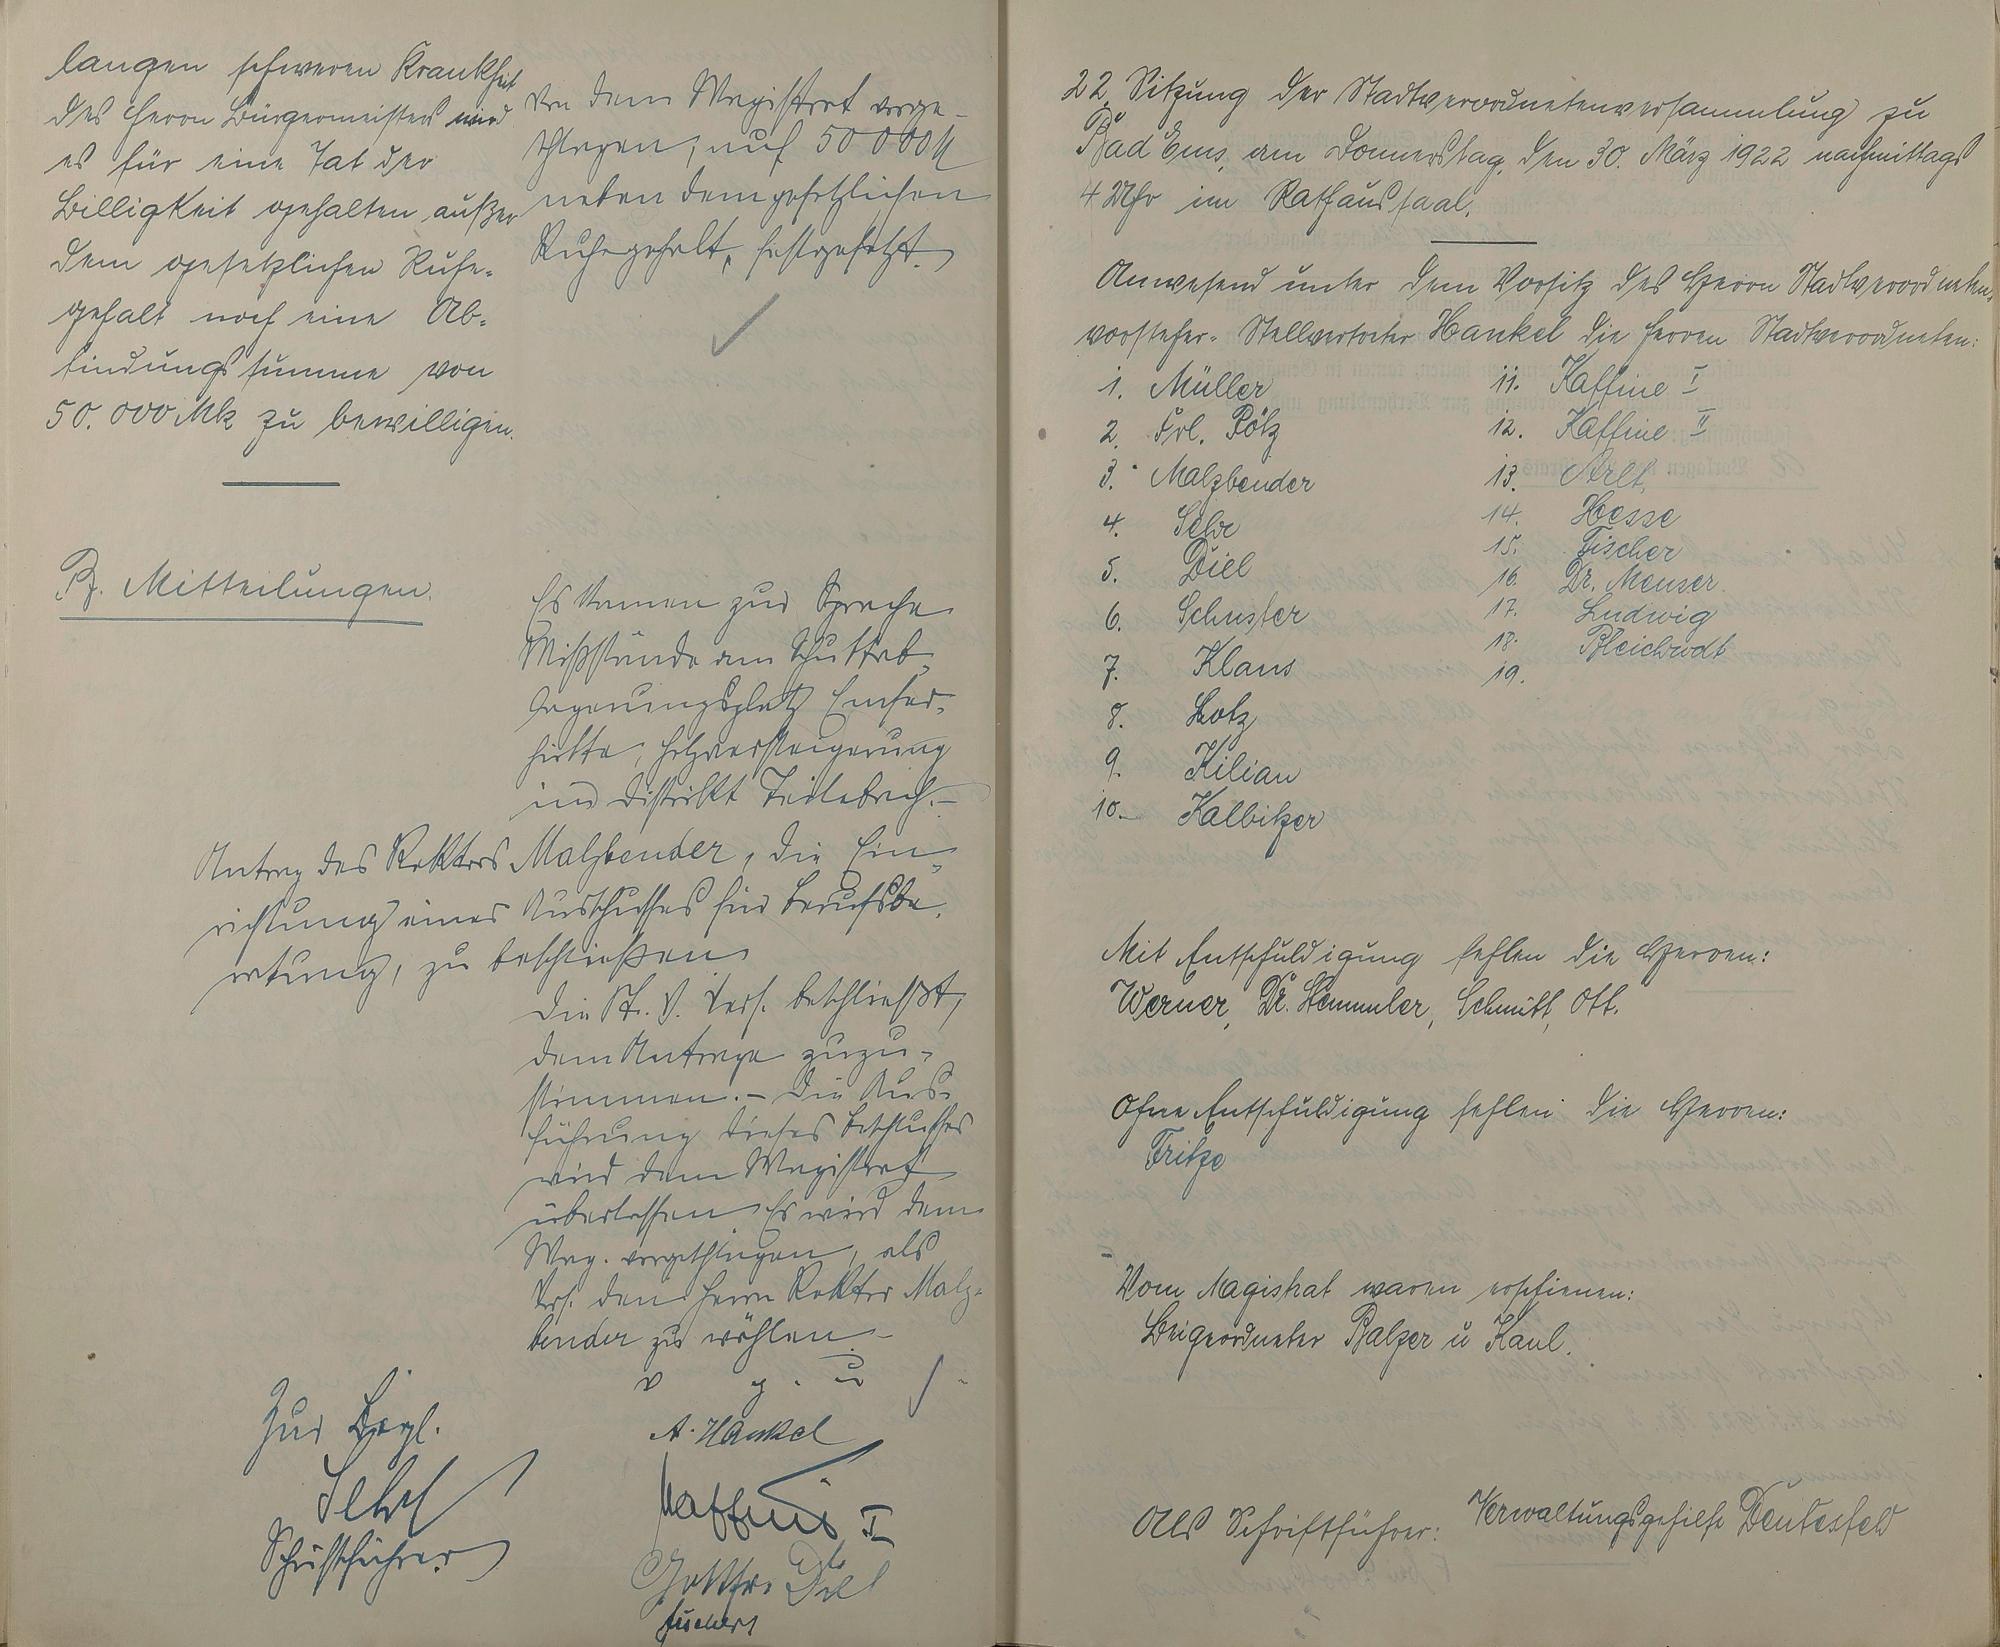 langen schweren Krankheit
des Herrn Bürgermeisters wird
es für eine Tat der
Billigkeit gehalten, außer
dem gesetzlichen Ruhe-
gehalt noch eine Ab-
findungssumme von
50.000 Mk zu bewilligen.
von dem Magistrat vorge-
schlagen, auf 50 000 M
neben dem gesetzlichen
Ruhegehalt, festgesetzt.
B. Mitteilungen.
Es kamen zur Sprache
Mißstände am Schuttab-
lagerungsplatz Emser-
hütte, Holzversteigerung
im Distrikt
Antrag des Rektors Malzbender, die Ein-
richtung eines Ausschusses für Berufsbe-
ratung, zu beschließen
Die St. V. Vers. beschließt,
dem Antrage zuzu-
stimmen. – Die Aus-
führung dieses Beschlusses
wird dem Magistrat
überlassen. Es wird dem
Mag. vorgeschlagen, als
Vors. den Herrn Rektor Malz-
bender zu wählen. –
v. g. u.
Zur Begl.
Sehr
Schriftführer
A. Hankel
Kaffine I
Gottfr. Diel
22. Sitzung der Stadtverordnetenversammlung zu
Bad Ems, am Donnerstag, den 30. März 1922 nachmittags
4 Uhr im Rathaussaal.
Anwesend unter dem Vorsitz des Herrn Stadtverordneten-
vorsteher-Stellvertreter Hankel die Herren Stadtverordneten:
1. Müller
2. Frl. Pötz
3. Malzbender
4. Sehr
5. Diel
6. Schuster
7. Klaus
8. Lotz
9. Kilian
10. Kalbitzer
11. Kaffine I
12. Kaffine II
13. Arlt,
14. Hesse
15. Fischer
16. Dr. Meuser.
17. Ludwig
18. Bleichrodt
19.
Mit Entschuldigung fehlen die Herren:
Werner, Dr. Stemmler, Schmitt, Ott.
Ohne Entschuldigung fehlen die Herren:
Fritze
Vom Magistrat waren erschienen:
Beigeordneter Balzer u Kaul.
Als Schriftführer: Verwaltungsgehilfe Deutesfeld